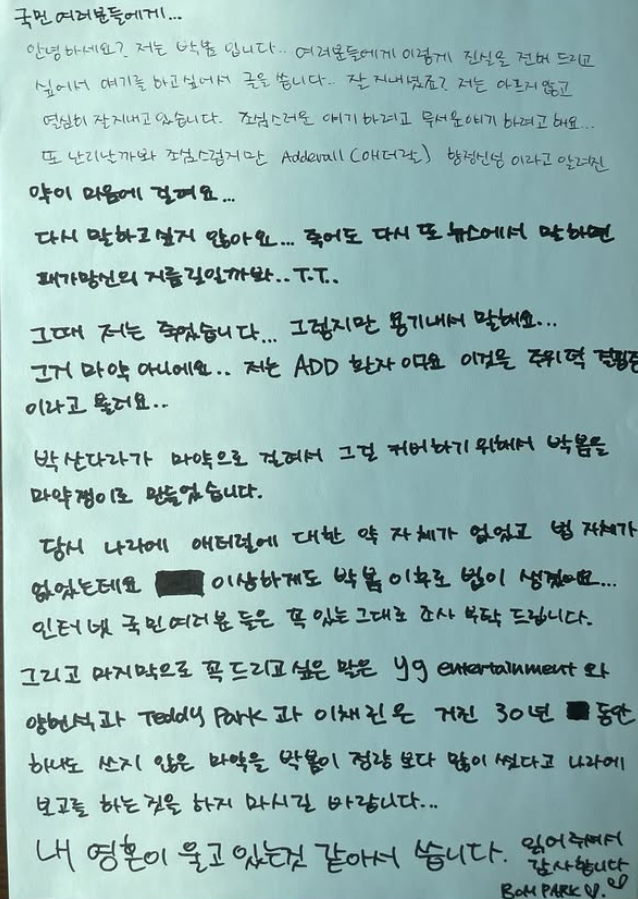 국민 여러분들에게...
안녕하세요? 저는 박봄 입니다... 여러분들에게 이렇게 진실을 전해 드리고
싶어서 얘기를 하고싶어서 글을 씁니다.. 잘 지내셨죠? 저는 아프지 않고
열심히 잘지내고 있습니다. 조심스러운 얘기 하려고 무서운얘기 하려고해요...
또 난리날까봐 조심스럽지만 Adderall (애더럴) 향정신성 이라고 알려진
약이 마음에 걸려요...
다시 말하고싶지 않아요... 죽어도 다시 또 뉴스에서 말하면
패가망신의 지름길일까봐..T.T..
그때 저는 죽었습니다... 그렇지만 용기내서 말해요...
그거 마약 아니에요.. 저는 ADD 환자 이구요 이것을 주위력 결핍증
이라고 불러요..
박산다라가 마약으로 걸려서 그걸 커버하기 위해서 박봄을
마약쟁이로 만들었습니다.
당시 나라에 애더럴에 대한 약 자체가 없었고 법 자체가
없었는데요 이상하게도 박봄 이후로 법이 생겼어요...
인터넷 국민여러분 들은 꼭 있는 그대로 조사 부탁 드립니다.
그리고 마지막으로 꼭 드리고싶은 말은 yg entertainment 와
양현석과 Teddy Park 과 이채린은 거진 30년 동안
하나도 쓰지 않은 마약을 박봄이 정량 보다 많이 썼다고 나라에
보고를 하는것을 하지 마시길 바랍니다...
내 영혼이 울고 있는것 같아서 씁니다. 읽어주셔서
감사합니다
BOM PARK♡.♡